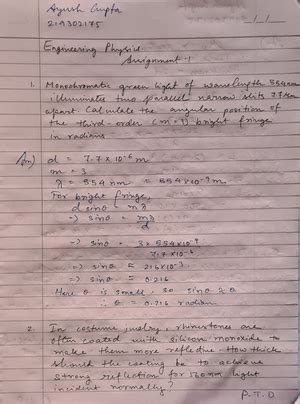 Ayush Gupta
21A302175
Engineering Physics
Assignment-1
1. Monochromatic green light of wavelength 554nm
illuminates two parallel narrow slits 7.7 μm
apart. Calculate the angular position of
the third-order (m=3) bright fringe
in radians
Ans) d = 7.7×10⁻⁶ m
m = 3
λ = 554 nm = 554×10⁻⁹ m
For bright fringe,
d sinθ = mλ
=) sinθ = mλ/d
=) sinθ = 3×554×10⁻⁹/7.7×10⁻⁶
=) sinθ = 216×10⁻³
=) sinθ = 0.216
Here θ is small, so sinθ ≈ θ
∴ θ = 0.216 radian
2. In costume jewelry, rhinestones are
often coated with silicon monoxide to
make them more reflective. How thick
should the coating be to achieve
strong reflection for 560nm light
incident normally?
P.T.O